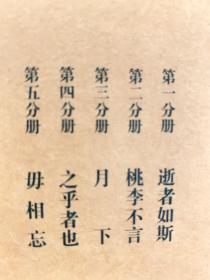 第一分册 逝者如斯
第二分册 桃李不言
第三分册 月下
第四分册 之乎者也
第五分册 毋相忘